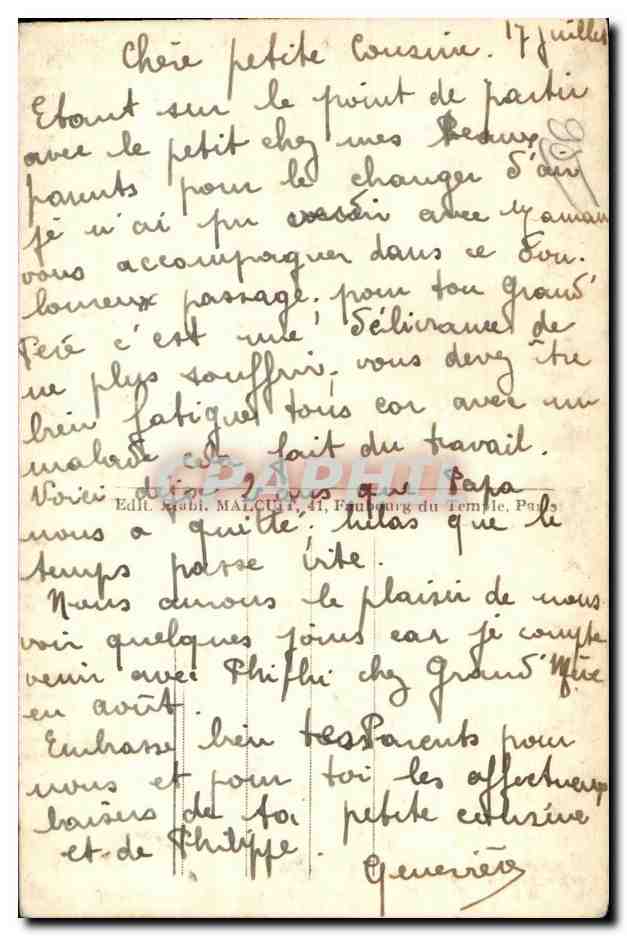 17 juillet
Chère petite Cousine.
Etant sur le point de partir
avec le petit chez mes Beaux
parents pour le changer d'air
je n'ai pu avec Maman
vous accompagner dans ce dou-
loureux passage. pour ton Grand'
Père c'est une délivrance de
ne plus souffrir. vous devez être
bien fatigués tous car avec un
malade cela fait du travail.
Voici déjà 2 ans que Papa
CPAPHIL
Edit. Etabl. MALCUIT, 41, Faubourg du Temple, Paris
nous a quitté, hélas que le
temps passe vite.
Nous aurons le plaisir de nous
voir quelques jours car je compte
venir avec Phiphi chez Grand' Mère
en août.
Embrasse bien tes Parents pour
nous et pour toi les affectueux
baisers de ta petite cousine
et de Philippe.
Geneviève